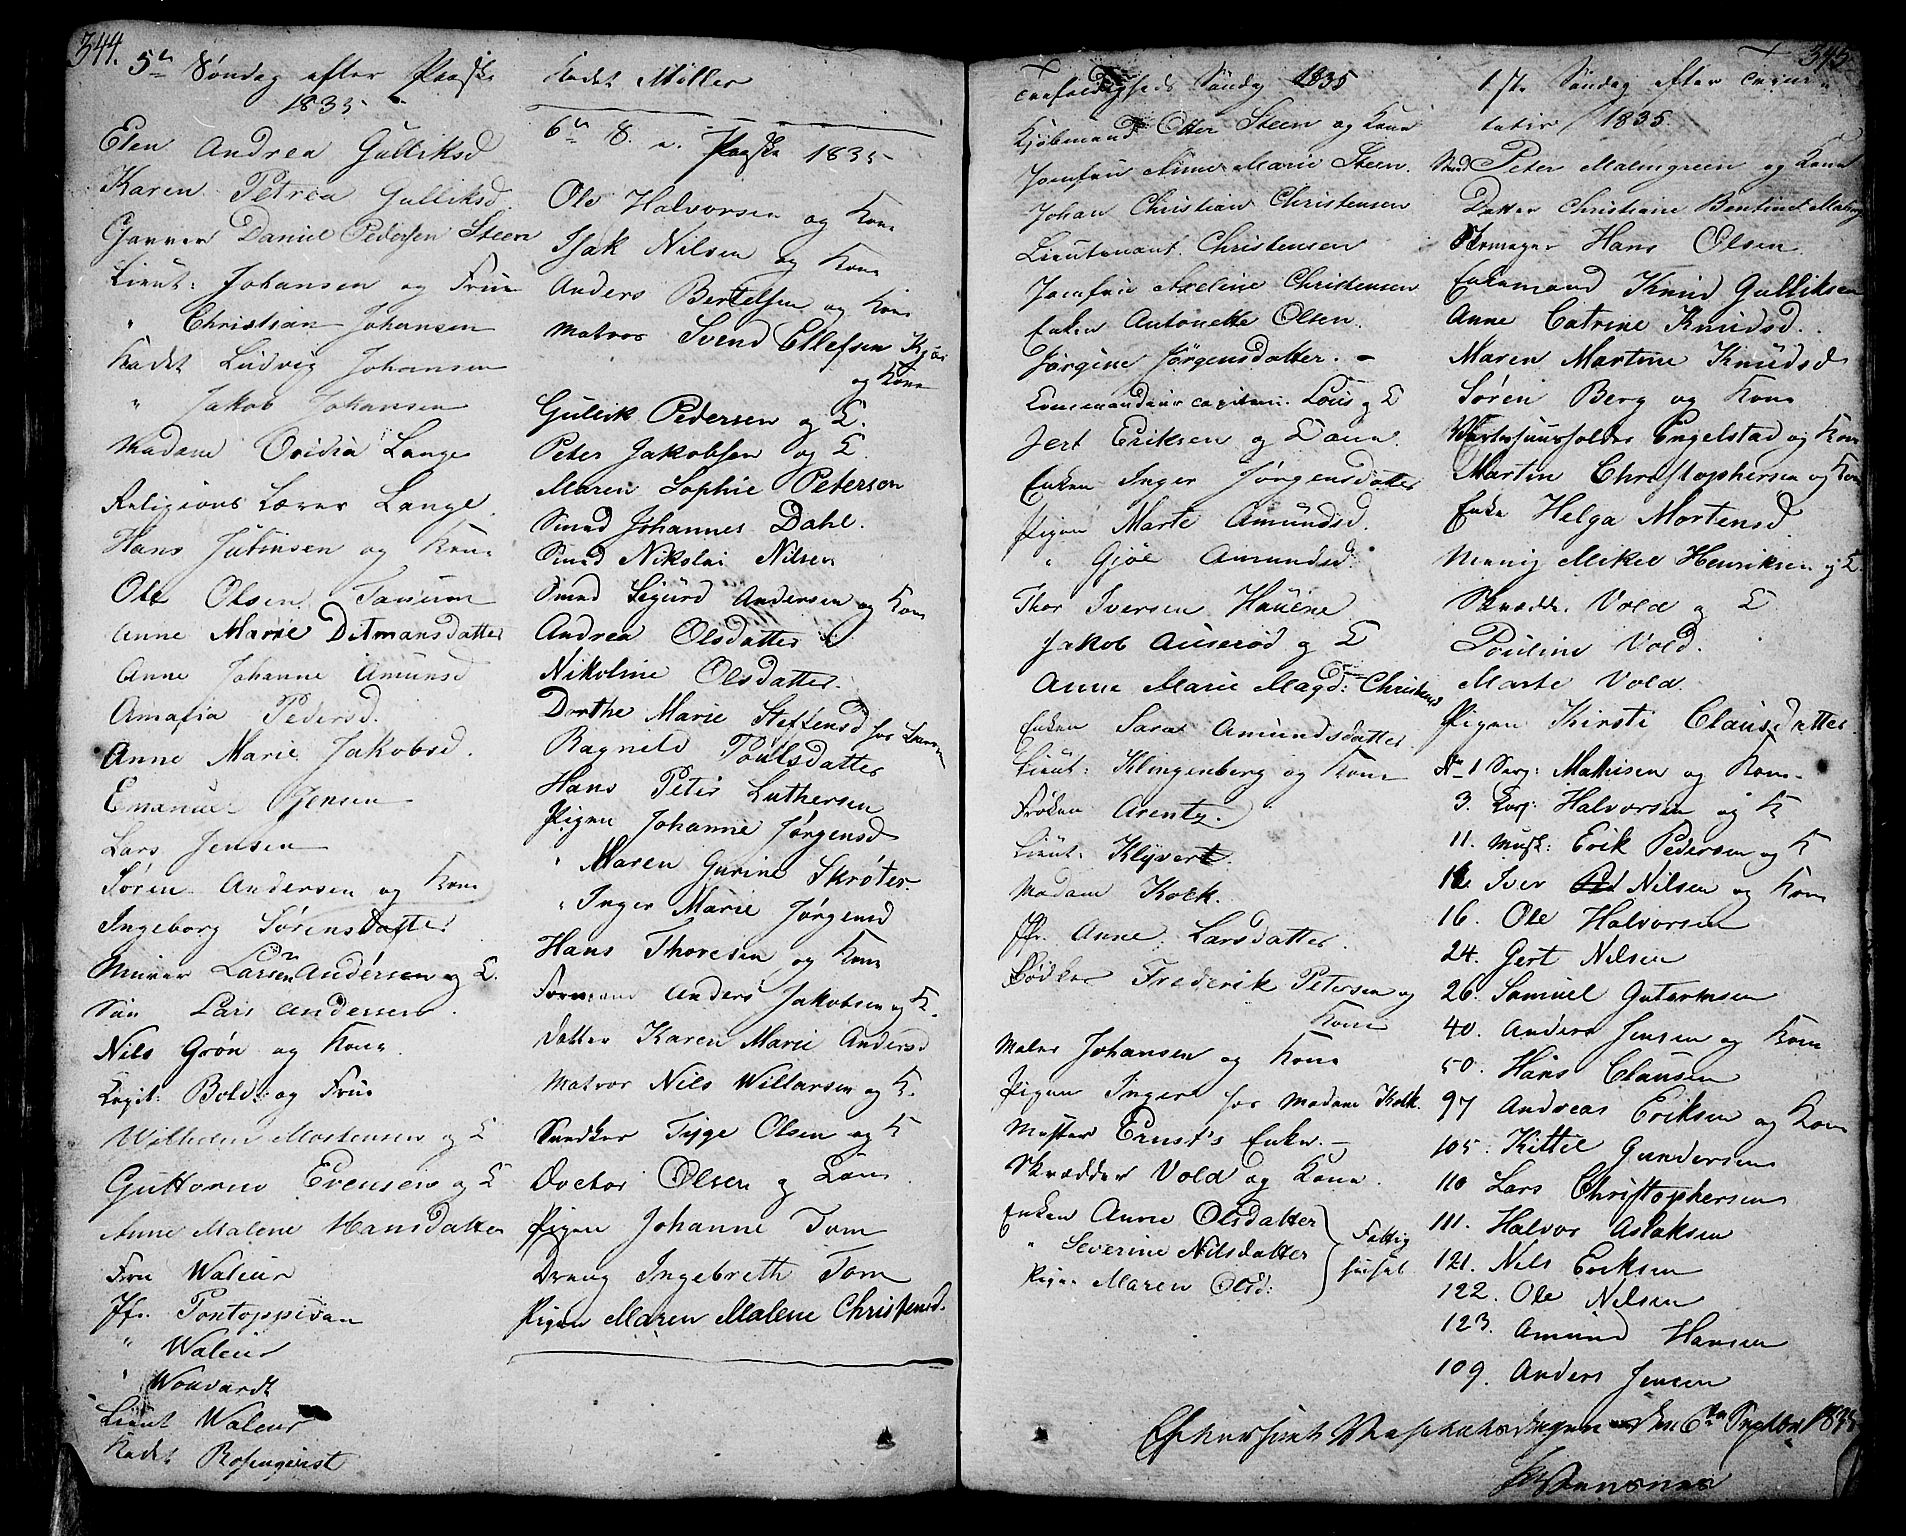 344.
5te Søndag efter Paaske
1835
Elen Andrea Gulliksd
Karen Petrea Gulliksd.
Garver Daniel Pedersen Steen
Lieut: Johansen og Frue
" Christian Johansen
Kadet Ludvig Johansen
" Jakob Johansen
Madam Ovidia Lange
Religions Lærer Lange.
Hans Julinsen og Kone
Ole Olsen Tanum
Anne Marie Ditmansdatter
Anne Johanne Amunsd
Amalia Pedersd.
Anne Marie Jakobsd.
Emanuel Jensen
Lars Jensen
Søren Andersen og Kone
Ingeborg Sørensdatter
Murer Larsen Andersen og K.
Søn Lars Andersen.
Nils Grøn og Kone.
Kapit: Bold: og Frue
Wilhelm Mortensen og K
Guttorm Evensen og K
Anne Malene Hansdatter
Frue Waleur
Jfr. Pontoppidan
" Waleur
" Wouvardt
Lieut Waleur
Kadet Rosenqvist
Kadet Møller
6te S. e. Paaske 1835
Ole Halvorsen og Kone
Isak Nilsen og Kone
Anders Bertelsen og Kone
Matros Svend Ellefsen Kjær
og Kone
Gullik Pedersen og K.
Peter Jakobsen og K.
Maren Sophie Peterson
Smed Johannes Dahl.
Smed Nikolai Nilsen
Smed Sigurd Andersen og Kone
Andrea Olsdatter
Nikoline Olsdatter.
Dorthe Marie Steffensd hos
Ragnild Poulsdatter
Hans Peter Luthersen
Pigen Johanne Jørgensd
" Maren Gurine Skrøter.
" Inger Marie Jørgensd
Hans Thoresen og Kone
Formand Anders Jakobsen og K.
Datter Karen Marie Andersd
Matros Nils Willarsen og K.
Snedker Tyge Olsen og K
Doctor Olsen og Kone.
Pigen Johanne Tom
Dreng Ingebreth Tom
Pigen Maren Malene Christensd.
Trefoldigheds Søndag 1835
Kjøbmand Otter Steen og Kone
Jomfru Anne Marie Steen.
Johan Christian Christensen
Lieutenant Christensen
Jomfru Aveline Christensen
Enken Antonette Olsen.
Jørgine Jørgensdatter.
Commandeur capitain Lous og K
Jert Eriksen og Kone.
Enken Inger Jørgensdatter
Pigen Marte Amundsd.
" Gjøe Amundsd.
Thor Iversen Hauene
Jakob Auserød og K
Anne Marie Magd: Christensd
Enken Sara Amundsdatter.
Lieut: Klingenberg og Kone
Frøken Arentz.
Lieut: Klyvert.
Madam Kolk.
Jfr. Anne Larsdatter.
Bødker Frederik Petersen og
Kone
Maler Johansen og Kone
Pigen Inger hos Madam Kolk.
Mester Ernst's Enke.
Skrædder Vold og Kone.
Enken Anne Olsdatter
" Severine Nilsdatter
Pigen Maren Olsd:
Fattig
huset
345
1ste Søndag efter Trini-
tatis 1835.
Smed Peter Malmgreen og Kone
Datter Christiane Bentine Malmg
Skomager Hans Olsen.
Enkemand Knud Gulliksen
Anne Catrine Knudsd.
Maren Martine Knudsd
Søren Berg og Kone
Værtshuusholder Engelstad og Kone
Martin Christophersen og Kone
Enke Helga Mortensd.
Mikel Henriksen og K.
Skrædder Vold og K
Pouline Vold.
Marte Vold.
Pigen Kirsti Clausdatter.
No 1 Serg: Mathisen og Kone
3. Korp: Halvorsen og K
11. Musk: Erik Pedersen og K
12. Iver Nilsen og Kone
16. Ole Halvorsen
24. Gert Nilsen
26. Samuel Gutormsen
40. Anders Jensen og Kone
50. Hans Clausen
97 Andreas Eriksen og Kone
105. Kittil Gundersen
110 Lars Christophersen
111. Halvor Aslaksen
121. Nils Eriksen
122. Ole Nilsen
123. Amund Hansen
109. Anders Jensen
Efterseet den 6te Septbr 1835